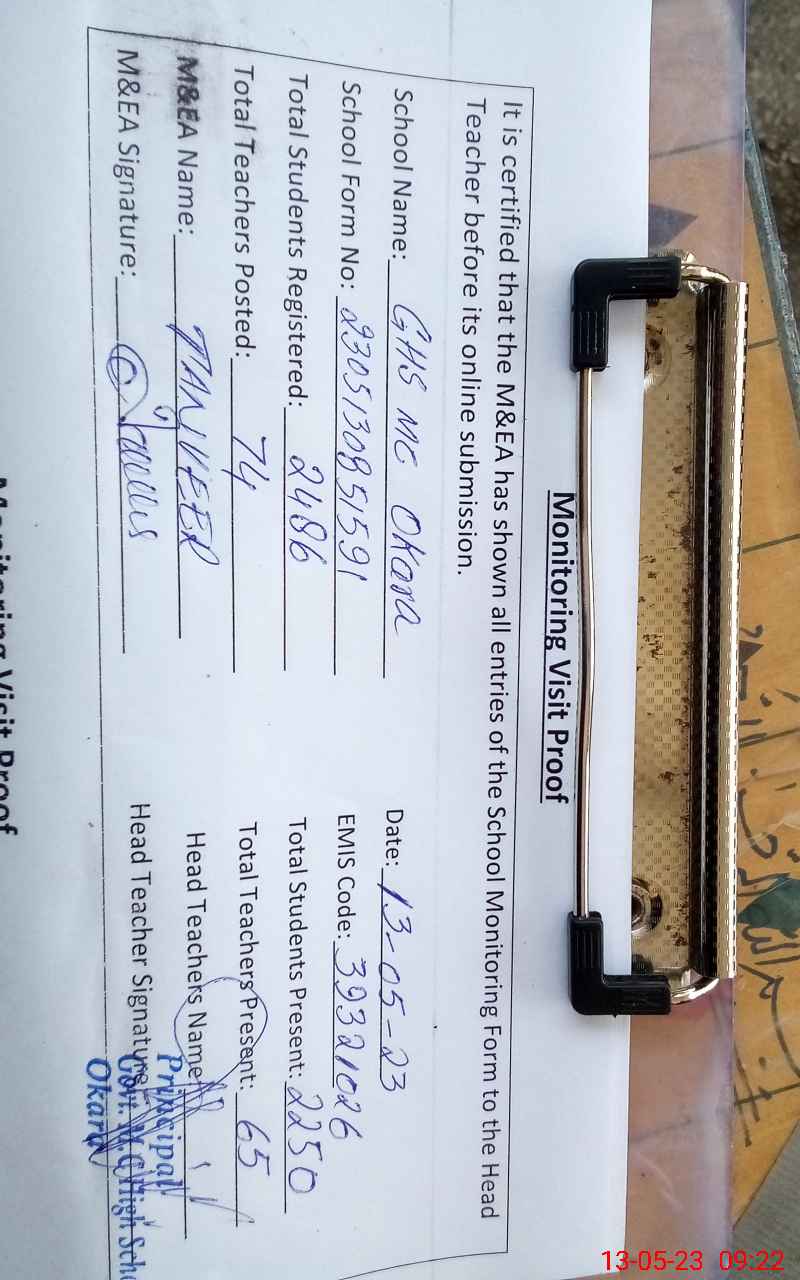 Monitoring Visit Proof
It is certified that the M&EA has shown all entries of the School Monitoring Form to the Head
Teacher before its online submission.
School Name: GHS MC Okara Date: 13-05-23
School Form No: 23051308 51591 EMIS Code: 39321026
Total Students Registered: 2486 Total Students Present: 2250
Total Teachers Posted: 74 Total Teachers Present: 65
M&EA Name: TANVEER Head Teachers Name
M&EA Signature: Head Teacher Signature
Principal
Govt. M.C High
Okara
Monitoring Visit Proof
13-05-23 09:22